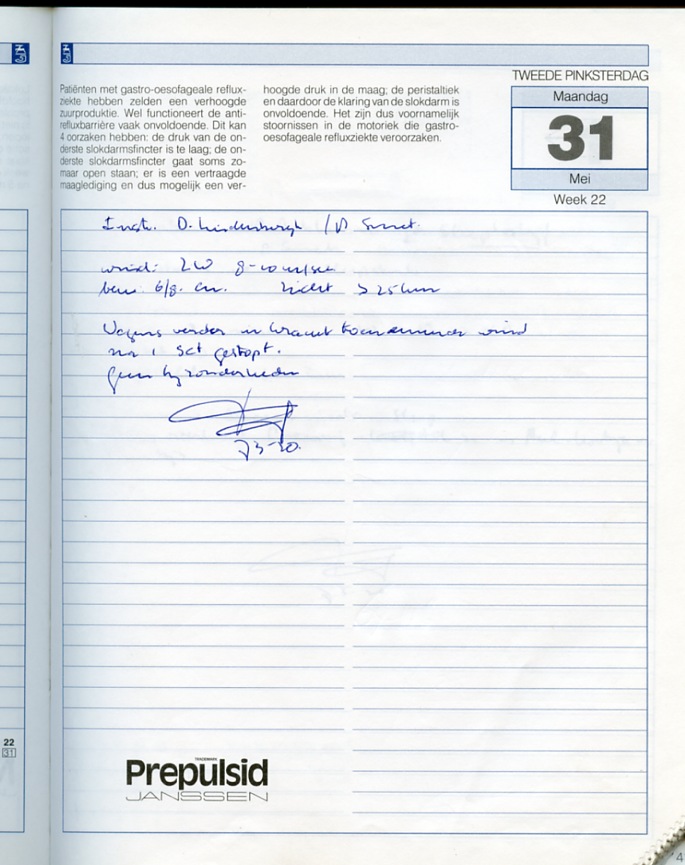 TWEEDE PINKSTERDAG
Maandag
31
Mei
Week 22
Patiënten met gastro-oesofageale reflux-
ziekte hebben zelden een verhoogde
zuurproduktie. Wel functioneert de anti-
refluxbarrière vaak onvoldoende. Dit kan
4 oorzaken hebben: de druk van de on-
derste slokdarmsfincter is te laag; de on-
derste slokdarmsfincter gaat soms zo-
maar open staan; er is een vertraagde
maaglediging en dus mogelijk een ver-
hoogde druk in de maag; de peristaltiek
en daardoor de klaring van de slokdarm is
onvoldoende. Het zijn dus voornamelijk
stoornissen in de motoriek die gastro-
oesofageale refluxziekte veroorzaken.
Instr. D. Lindenburgh /
wind: ZW 8-10 m/sec
bew: 6/8. cu. zicht > 25 km
Wegens verder in kracht toenemende wind
na 1 set gestopt.
geen bijzonderheden
TRADEMARK
Prepulsid
JANSSEN
22
31